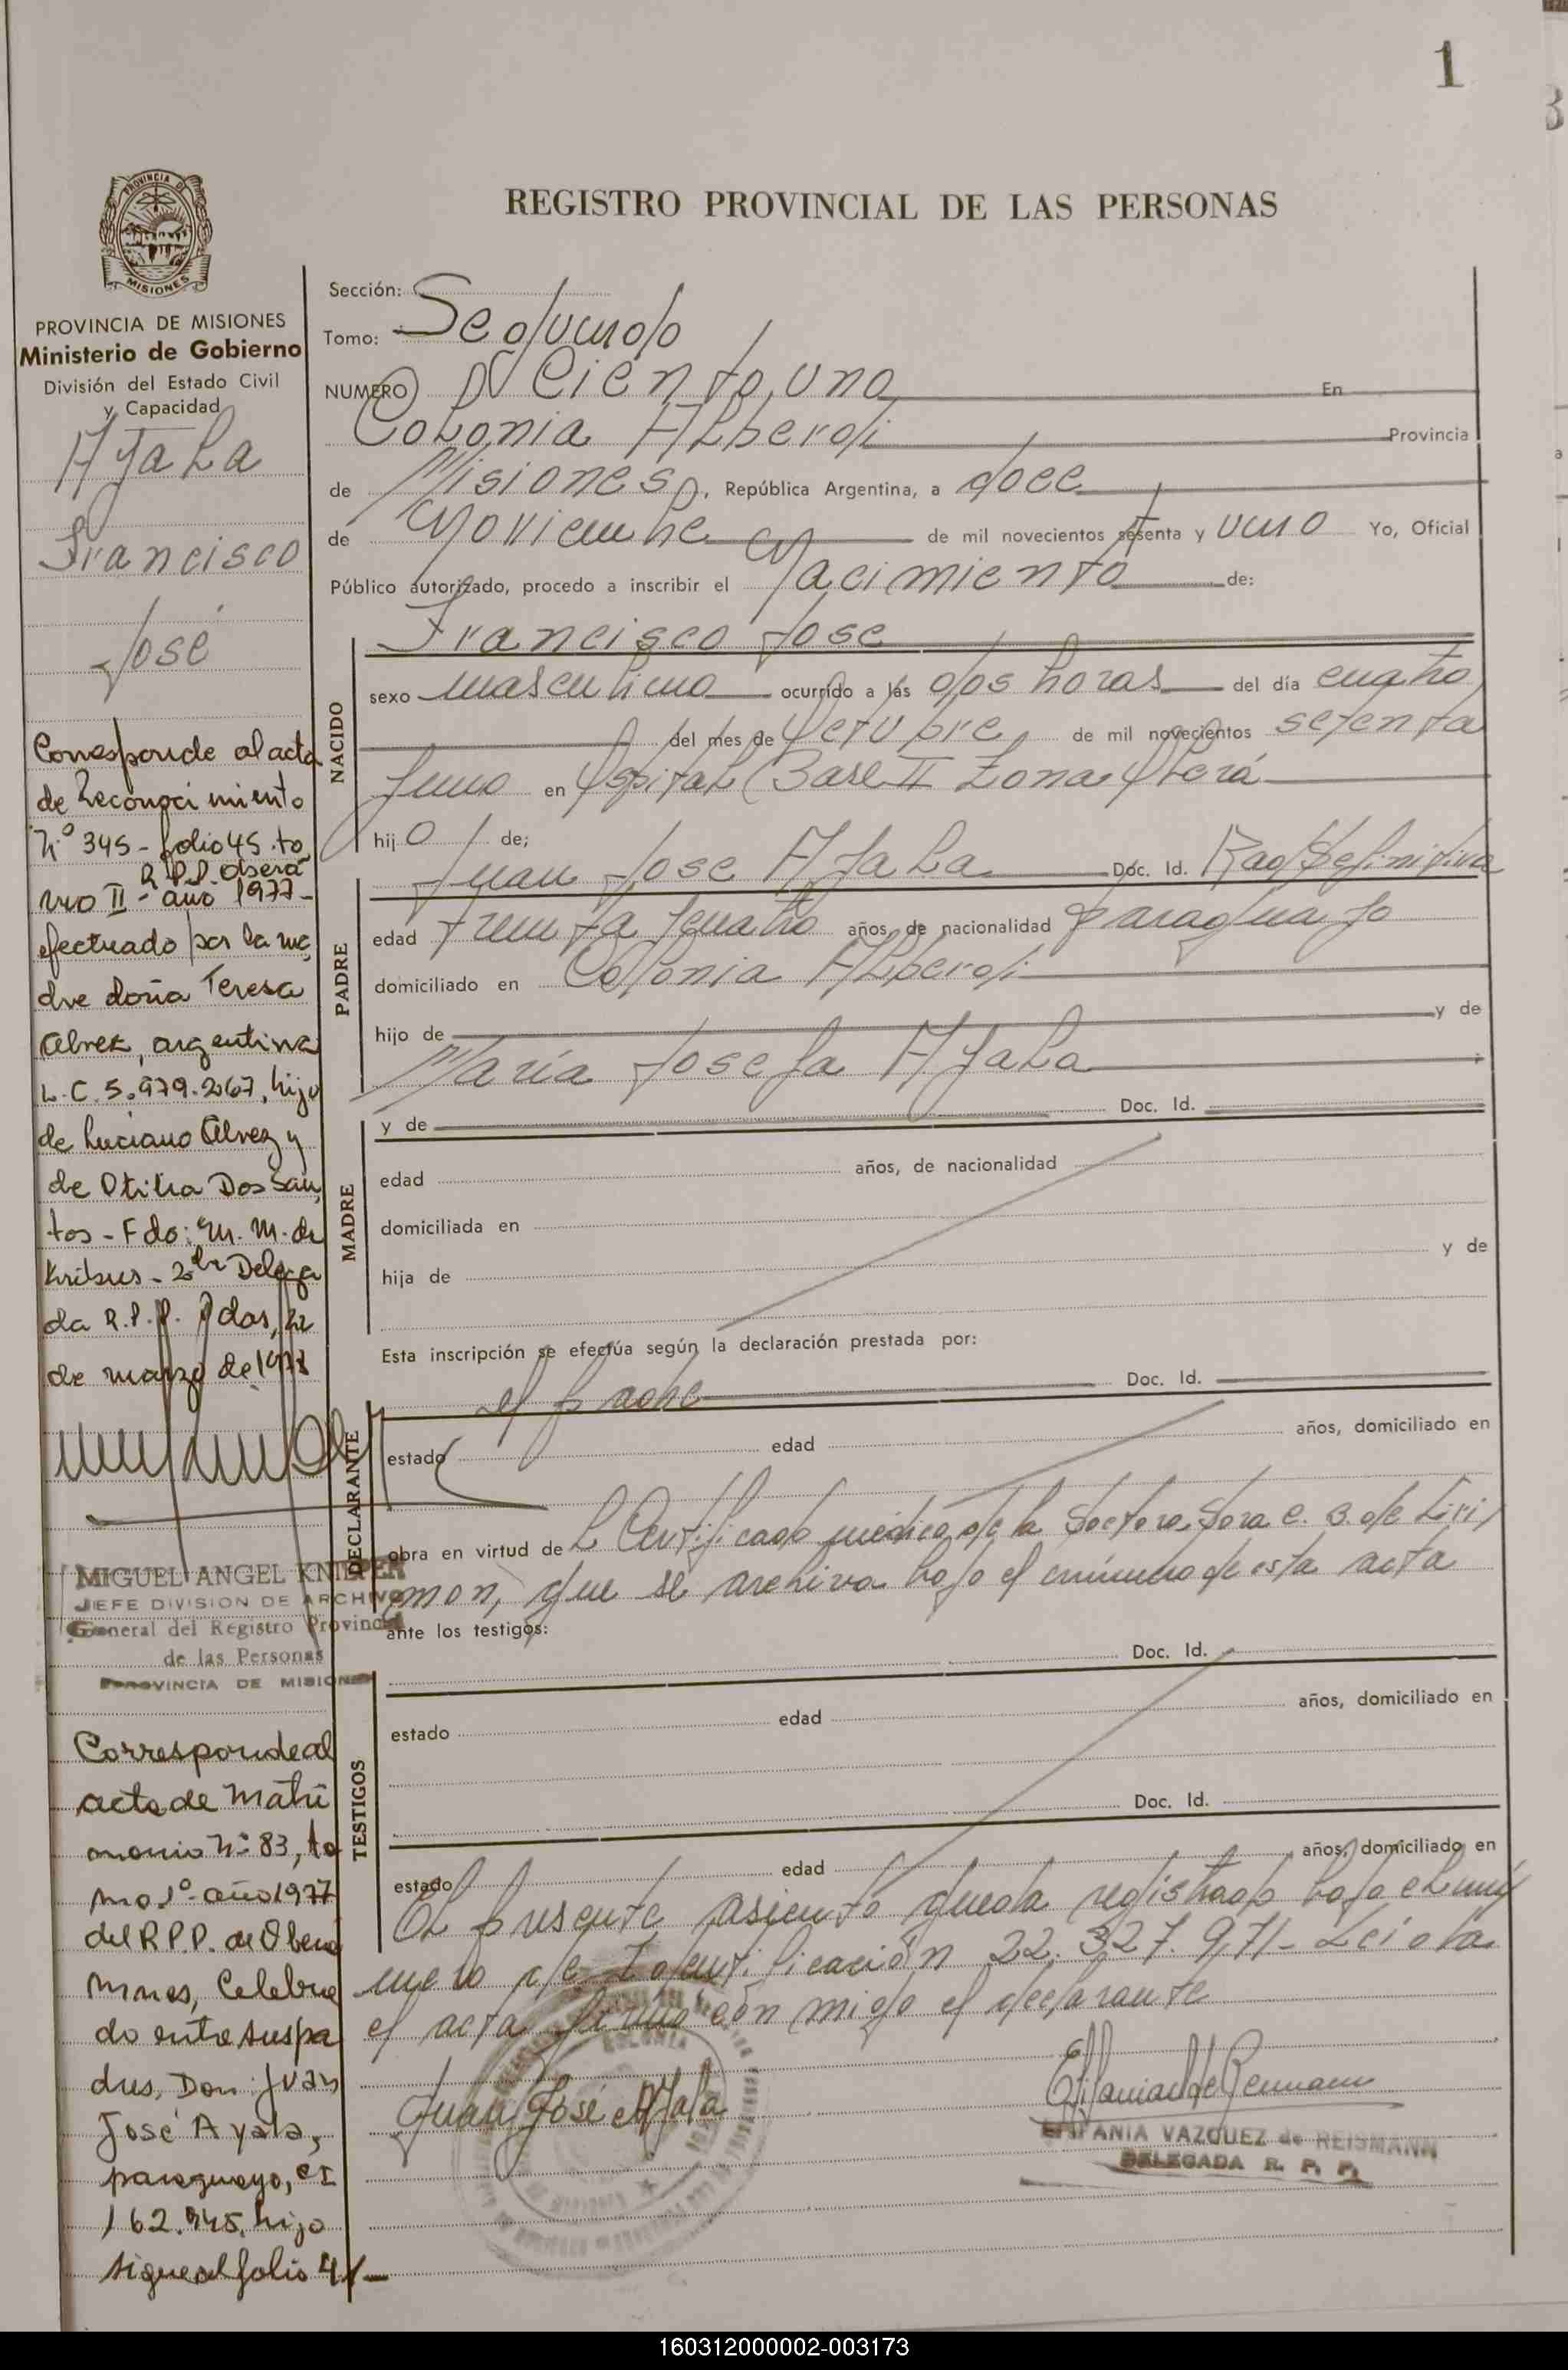 1
REGISTRO PROVINCIAL DE LAS PERSONAS
PROVINCIA DE
MISIONES
PROVINCIA DE MISIONES
Ministerio de Gobierno
División del Estado Civil
y Capacidad
Ayala
Francisco
José
Corresponde al acta
de Reconoci miento
Nº 345 - folio 45 - to
R.P.P. Oberá
mo II - año 1977 -
efectuado por la ma
dre doña Teresa
Alvez, argentina
L.C. 5.979.267, hija
de Luciano Alvez y
de Otilia Dos San
tos - Fdo: M. M. de
Delega
da R.P.P. Pdas, 22
de marzo de 1978
MIGUEL ANGEL KNIPPER
JEFE DIVISION DE ARCHIVO
General del Registro Provincial
de las Personas
PROVINCIA DE MISIONES
Corresponde al
acta de Matri
monio Nº 83, to
mo 1º - año 1977
del R.P.P. de Oberá
Mnes, Celebra
do entre sus pa
dres, Don Juan
José Ayala,
paraguayo, CI
162.945, hijo
sigue al folio 4/-
Sección:
Tomo: Segundo
NUMERO Ciento uno En
Colonia Alberdi Provincia
de Misiones, República Argentina, a doce
de Noviembre de mil novecientos setenta y uno Yo, Oficial
Público autorizado, procedo a inscribir el Nacimiento de:
Francisco Jose
NACIDO
sexo masculino ocurrido a las dos horas del día cuatro
del mes de Octubre de mil novecientos setenta
y uno en Ospital Base II Zona Oberá
hij o de;
Juan Jose Ayala Doc. Id. Rad Definitiva
PADRE
edad treinta y cuatro años, de nacionalidad paraguayo
domiciliado en Colonia Alberdi
hijo de y de
María Josefa Ayala
y de Doc. Id.
MADRE
edad años, de nacionalidad
domiciliada en
hija de y de
Esta inscripción se efectúa según la declaración prestada por:
el padre Doc. Id.
DECLARANTE
estado edad años, domiciliado en
obra en virtud de L Certificado médico de la Doctora Dora C. S. de
que se archiva bajo el número de esta acta
ante los testigos:
Doc. Id.
TESTIGOS
estado edad años, domiciliado en
Doc. Id.
estado edad años, domiciliado en
El presente asiento queda registrado bajo el nú
mero de Identificación 22.327.971 - Leída
el acta firma con migo el declarante
Juan José Ayala
EPIFANIA VAZQUEZ de REISMANN
DELEGADA R. P. P.
160312000002-003173